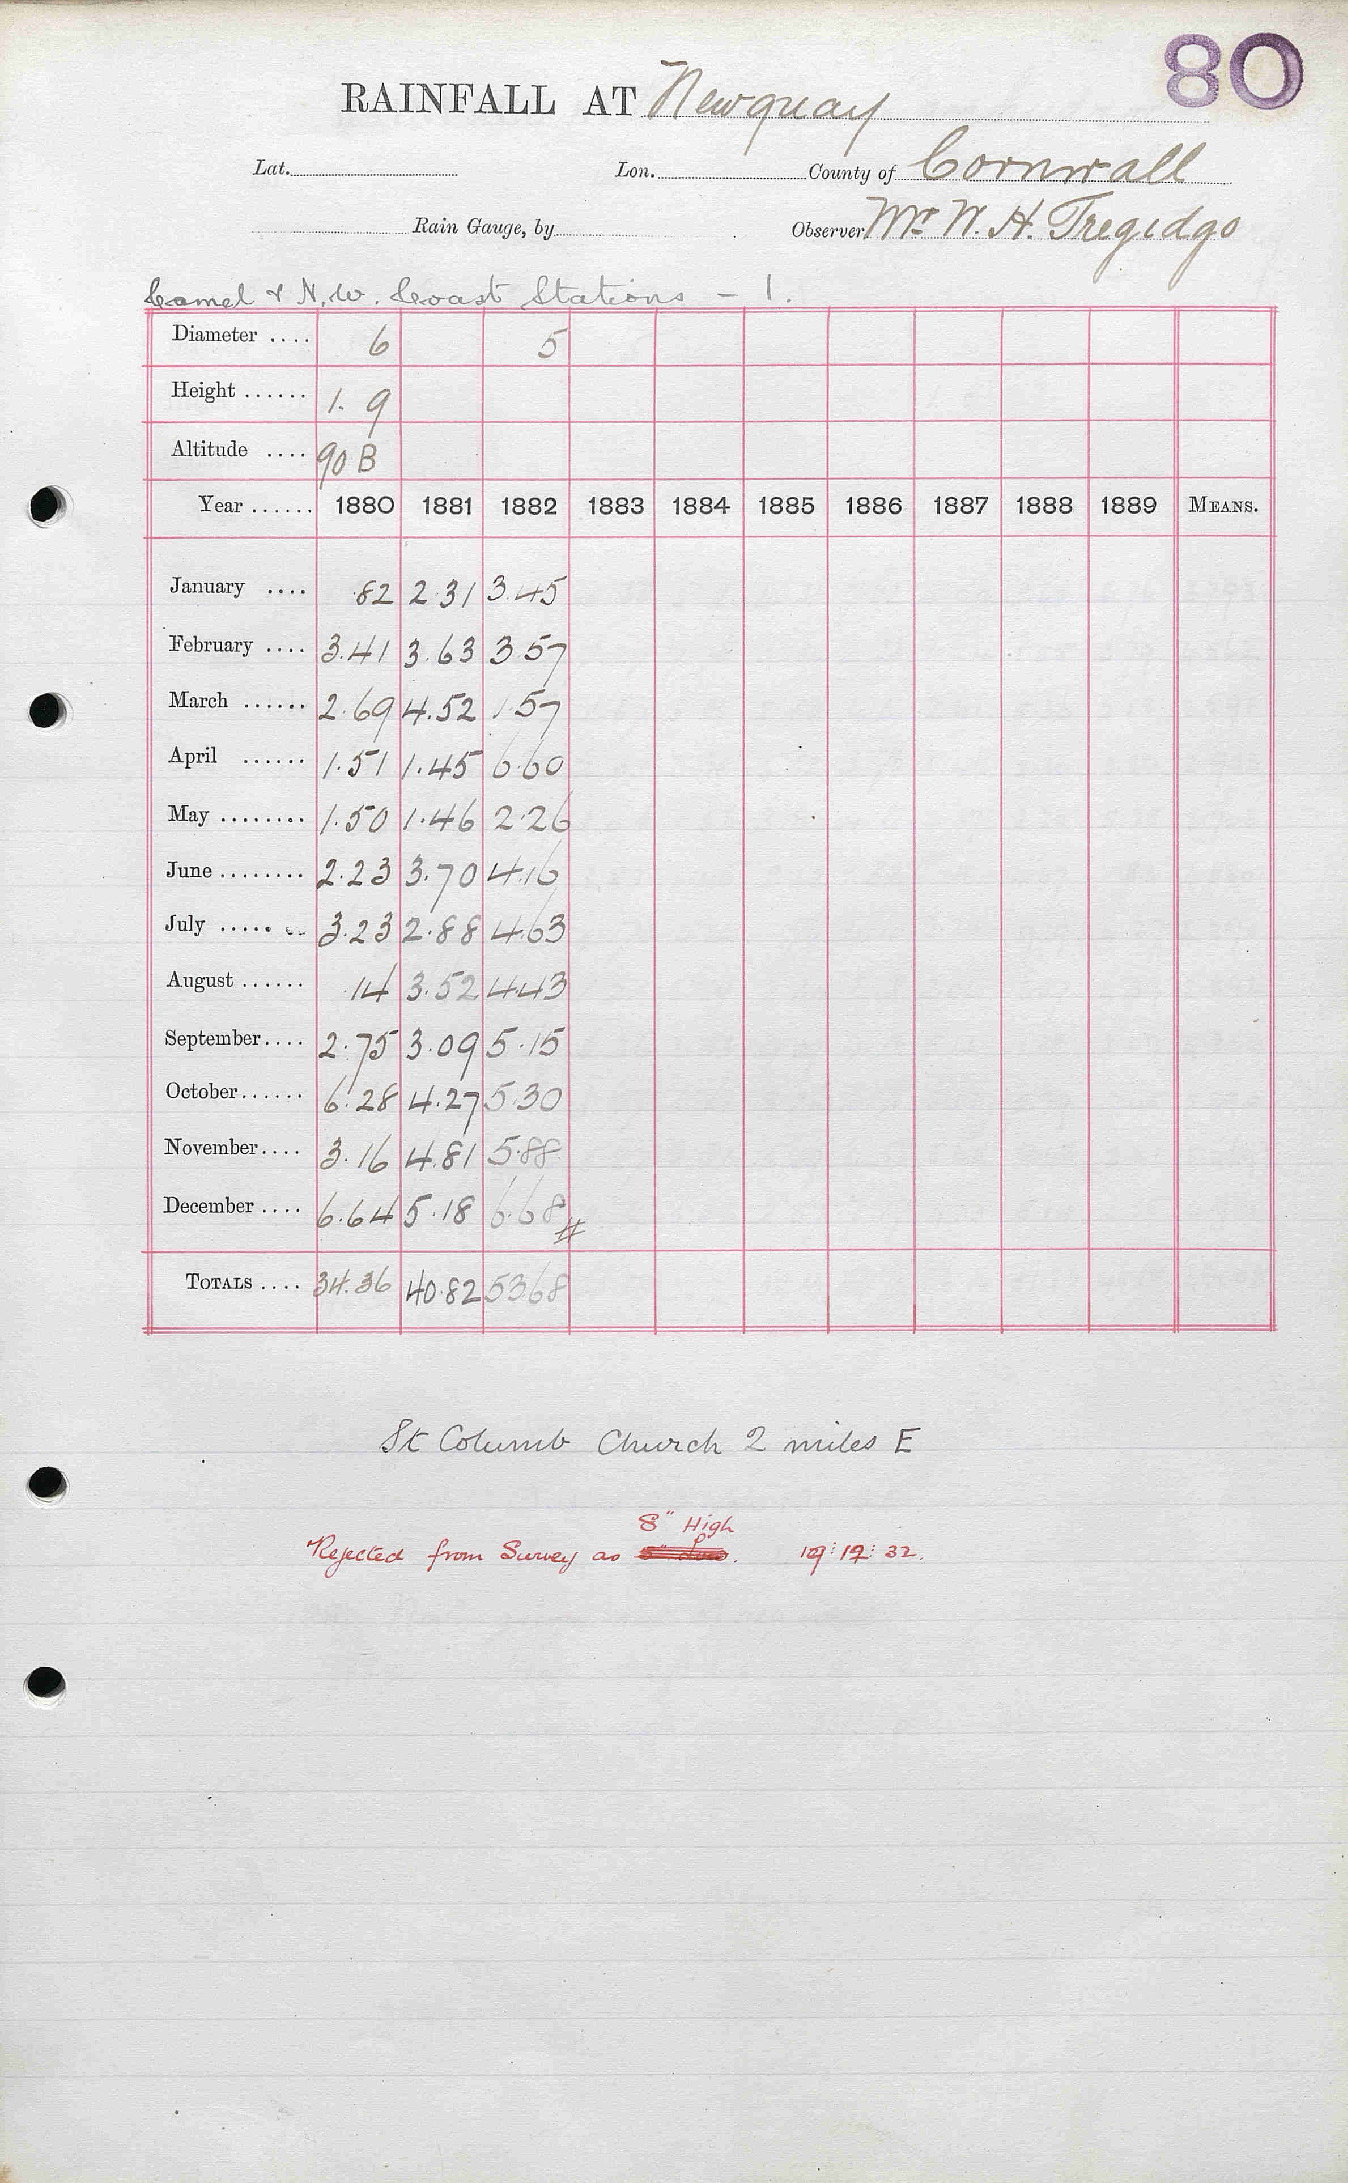 80
RAINFALL AT Newquay
Lat. Lon. County of Cornwall
Rain Gauge, by Observer Mr. W. H. Tregidgo
Camel & N.W. Coast Stations - 1.
Diameter .... 6 5
Height ...... 1. 9
Altitude .... 90 B
Year ...... 1880 1881 1882 1883 1884 1885 1886 1887 1888 1889 MEANS.
January .... .82 2.31 3.45
February .... 3.41 3.63 3.57
March ...... 2.69 4.52 1.57
April ...... 1.51 1.45 6.60
May ........ 1.50 1.46 2.26
June ........ 2.23 3.70 4.16
July ........ 3.23 2.88 4.63
August ...... .14 3.52 4.43
September.... 2.75 3.09 5.15
October...... 6.28 4.27 5.30
November.... 3.16 4.81 5.88
December .... 6.64 5.18 6.68 #
TOTALS .... 34.36 40.82 53.68
St Columb Church 2 miles E
8" High
Rejected from Survey as 19:12:32.